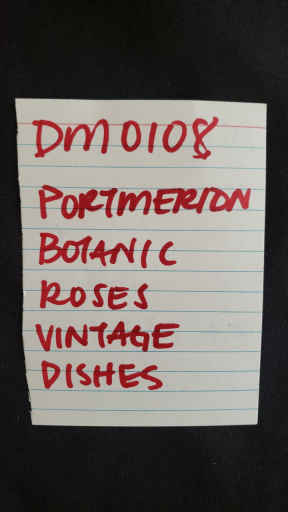 DM0108
PORTMERION
BOTANIC
ROSES
VINTAGE
DISHES